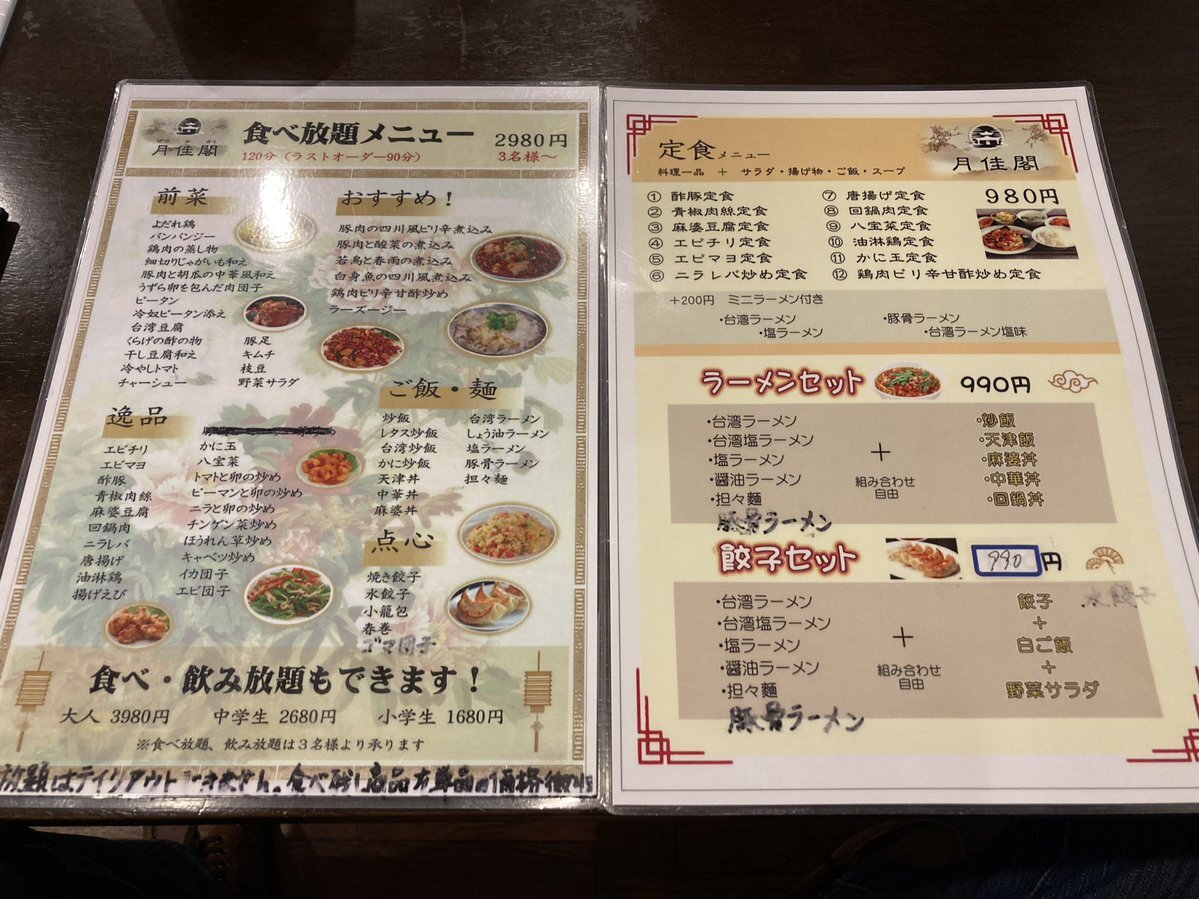 月佳閣
食べ放題メニュー
120分（ラストオーダー90分）
2980円
3名様～
前菜
よだれ鶏
バンバンジー
鶏肉の蒸し物
細切りじゃがいも和え
豚肉と胡瓜の中華風和え
うずら卵を包んだ肉団子
ピータン
冷奴ピータン添え
台湾豆腐
くらげの酢の物
干し豆腐和え
冷やしトマト
チャーシュー
豚足
キムチ
枝豆
野菜サラダ
おすすめ！
豚肉の四川風ピリ辛煮込み
豚肉と酸菜の煮込み
若鳥と春雨の煮込み
白身魚の四川風煮込み
鶏肉ピリ辛甘酢炒め
ラーズージー
逸品
エビチリ
エビマヨ
酢豚
青椒肉絲
麻婆豆腐
回鍋肉
ニラレバ
唐揚げ
油淋鶏
揚げえび
かに玉
八宝菜
トマトと卵の炒め
ピーマンと卵の炒め
ニラと卵の炒め
チンゲン菜炒め
ほうれん草炒め
キャベツ炒め
イカ団子
エビ団子
ご飯・麺
炒飯
レタス炒飯
台湾炒飯
かに炒飯
天津丼
中華丼
麻婆丼
台湾ラーメン
しょう油ラーメン
塩ラーメン
豚骨ラーメン
担々麺
点心
焼き餃子
水餃子
小籠包
春巻
ゴマ団子
食べ・飲み放題もできます！
大人 3980円 中学生 2680円 小学生 1680円
※食べ放題、飲み放題は3名様より承ります
放題はテイクアウトできません。食べ残し商品
定食メニュー
料理一品 ＋ サラダ・揚げ物・ご飯・スープ
月佳閣
980円
① 酢豚定食
② 青椒肉絲定食
③ 麻婆豆腐定食
④ エビチリ定食
⑤ エビマヨ定食
⑥ ニラレバ炒め定食
⑦ 唐揚げ定食
⑧ 回鍋肉定食
⑨ 八宝菜定食
⑩ 油淋鶏定食
⑪ かに玉定食
⑫ 鶏肉ピリ辛甘酢炒め定食
＋200円 ミニラーメン付き
・台湾ラーメン
・塩ラーメン
・豚骨ラーメン
・台湾ラーメン塩味
ラーメンセット 990円
・台湾ラーメン
・台湾塩ラーメン
・塩ラーメン
・醤油ラーメン
・担々麺
豚骨ラーメン
＋
組み合わせ
自由
・炒飯
・天津飯
・麻婆丼
・中華丼
・回鍋丼
餃子セット 990円
・台湾ラーメン
・台湾塩ラーメン
・塩ラーメン
・醤油ラーメン
・担々麺
豚骨ラーメン
＋
組み合わせ
自由
餃子
＋
白ご飯
＋
野菜サラダ